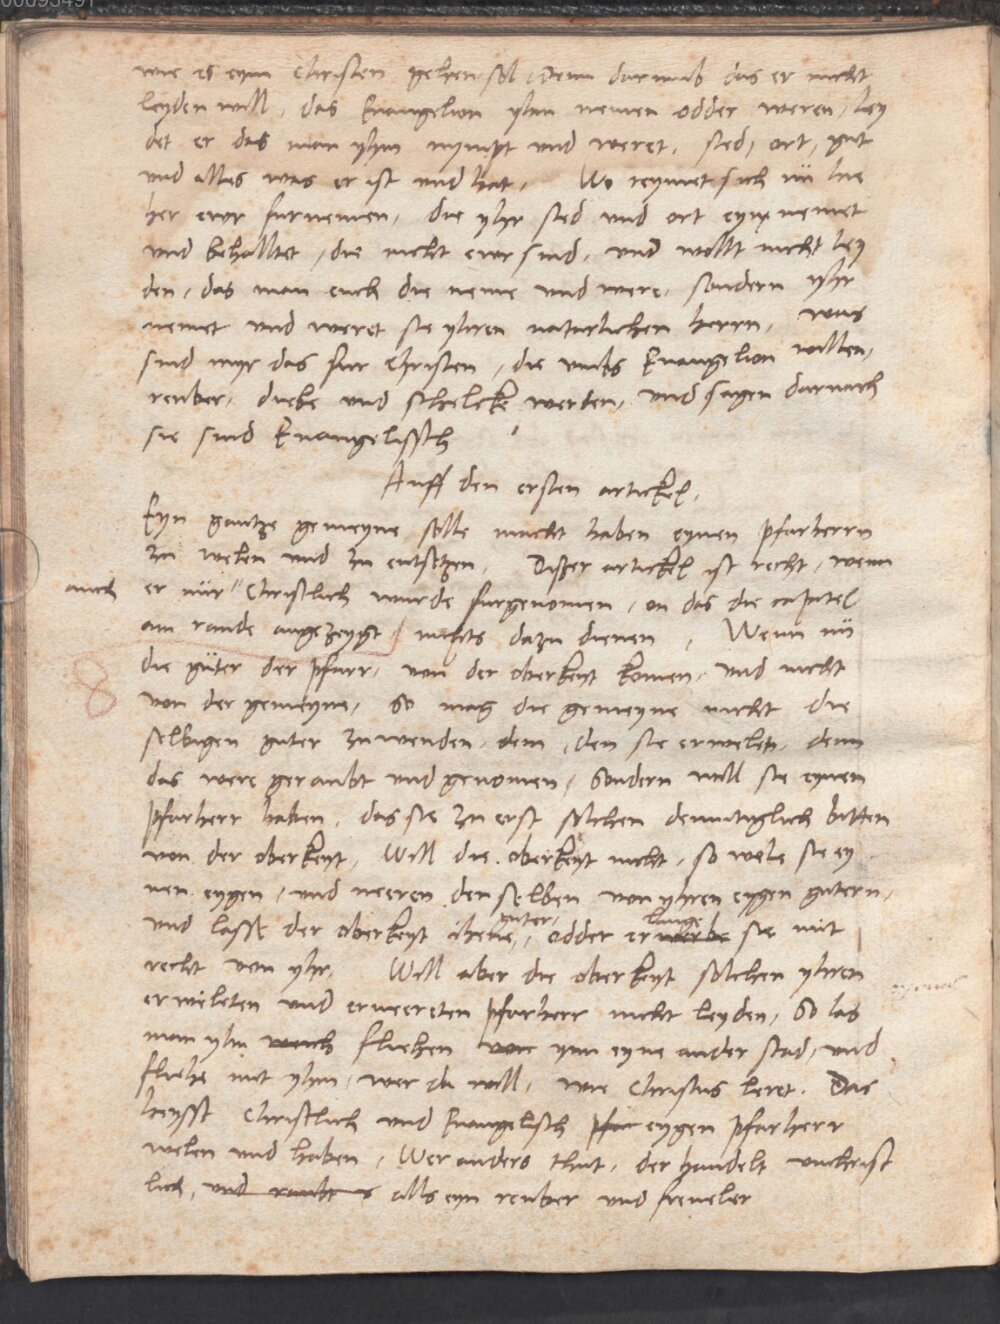 00093491
wie es eym Christen gehen sol, Denn darumb das er nicht
leyden will, das Euangelion yhm nemen odder weren, ley
det er das man yhm nympt und weret, sted, ort, gut
und alles was er ist und hat, Wo reymet sich nü hie
her ewr furnemen, die yhr sted und ort eyn nemet
und behalltet, die nicht ewr sind, und wollt nicht ley
den, das man euch die neme und were, sondern yhr
nemet und weret sie yhren naturlichen herrn, was
sind myr das fur Christen, die umbs Euangelion willen,
reuber, diebe und schelcke werden, und sagen darnach
sie sind Euangelissch
Auff den ersten artickel,
Eyn gantze gemeyne solle macht haben eynen pfarherrn
zu welen und zu entsetzen, Dißer artickel ist recht, wenn
auch
er nür Christlich wurde furgenomen, on das die capitel
am rande angezeygt nichts dazu dienen, Wenn nü
8
die güter der pfarr, von der oberkeyt komen, und nicht
von der gemeyne, So mag die gemeyne nicht die
selbigen guter zuwenden dem, den sie erwelet, denn
das were geraubt und genomen, Sondern will sie eynen
pfarherr haben, das sie zu erst solchen demutiglich bitten
von der oberkeyt, Will die oberkeyt nicht, so wele sie ey
nen eygen, und neeren den selben von yhren eygen gutern,
und lasse der oberkeyt ihene guter, odder erlange sie mit
recht von yhr, Will aber die oberkeyt solchen yhren
erwileten und erneereten pfarherr nicht leyden, So las
man yhn fliehen ynn eyne ander stad, und
fliehe mit yhm, wer da will, wie Christus leret. Das
heysst Christlich und Euangelisch eygen pfarherr
welen und haben, Wer anders thut, der handelt unchrist
lich, und raubt alls eyn reuber und freueler